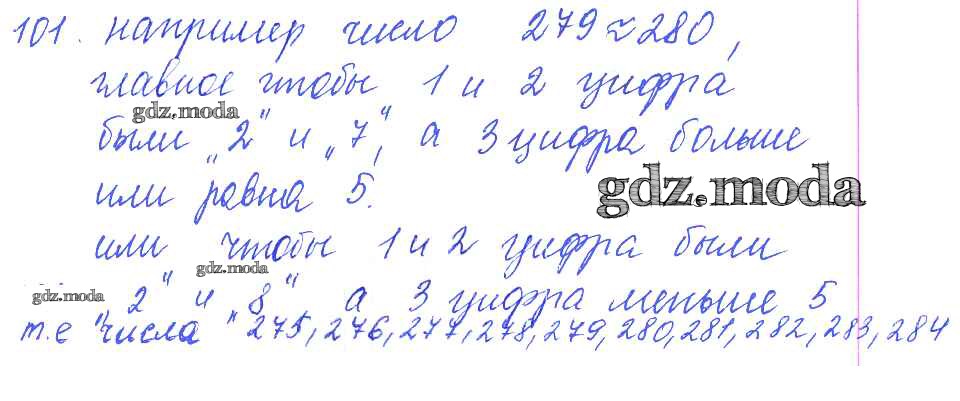 101. например число 279≈280,
главное чтобы 1 и 2 цифра
gdz.moda
были „2" и „7", а 3 цифра больше
или равна 5.
gdz.moda
или чтобы 1 и 2 цифра были
gdz.moda
gdz.moda
„2" и „8" а 3 цифра меньше 5
т.е числа 275, 276, 277, 278, 279, 280, 281, 282, 283, 284